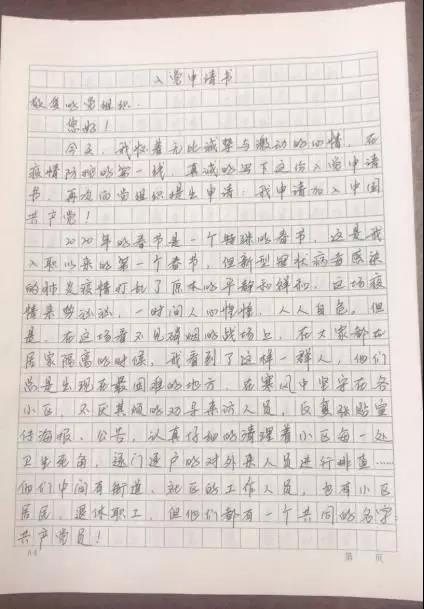 入党申请书
敬爱的党组织：
您好！
今天，我怀着无比诚挚与激动的心情，在
疫情防控的第一线，真诚的写下这份入党申请
书，再次向党组织提出申请：我申请加入中国
共产党！
2020年的春节是一个特殊的春节，这是我
入职以来的第一个春节，但新型冠状病毒感染
的肺炎疫情打乱了原本的平静和祥和，这场疫
情来势汹汹，一时间人心惶惶，人人自危。但
是，在这场看不见硝烟的战场上，在大家都在
居家隔离的时候，我看到了这样一群人，他们
总是出现在最困难的地方，在寒风中坚守在各
小区，不厌其烦的劝导来访人员，反复张贴宣
传海报、公告，认真仔细的清理着小区每一处
卫生死角，逐门逐户的对外来人员进行排查……
他们中间有街道、社区的工作人员，也有小区
居民、退休职工，但他们都有一个共同的名字
共产党员！
第 页